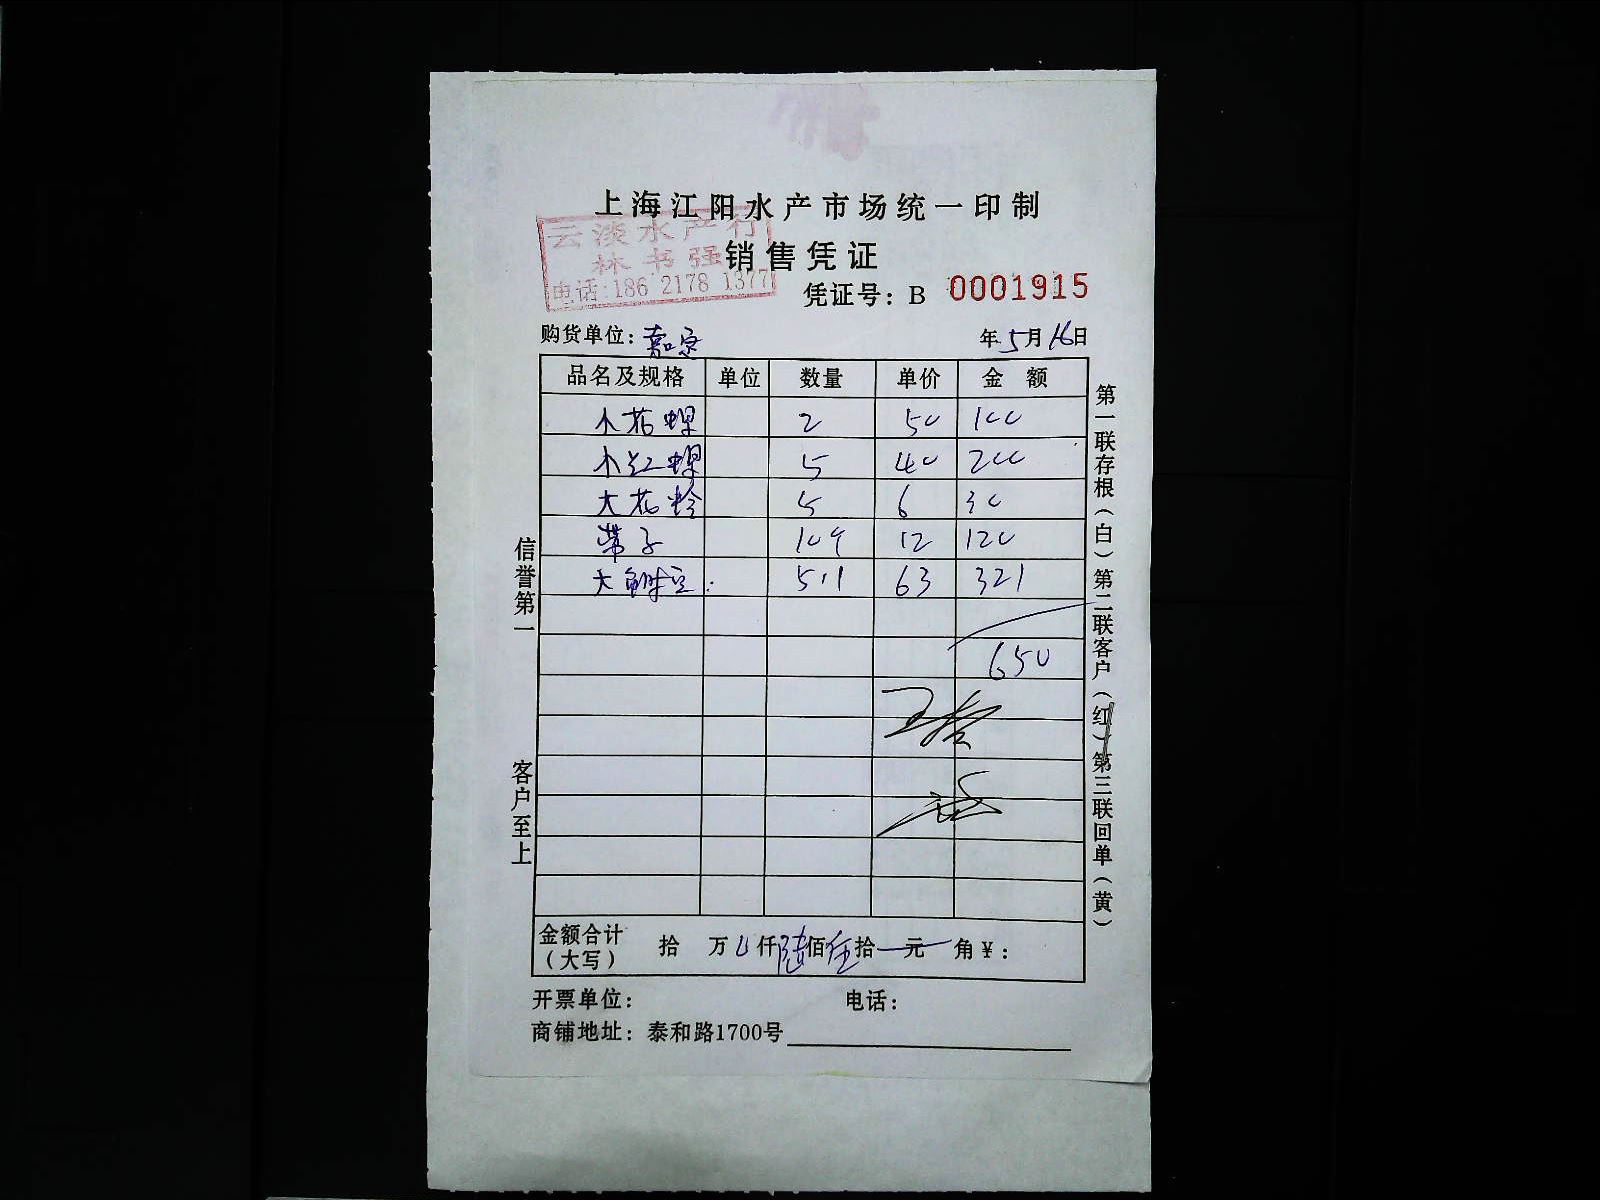 上海江阳水产市场统一印制
云淡水产行
林书强
电话:186 2178 1377
销售凭证
凭证号: B 0001915
购货单位: 嘉定 年5月16日
品名及规格 单位 数量 单价 金 额
小花螺 2 50 100
小红螺 5 40 200
大花蛤 5 6 30
带子 10个 12 120
大鲜 5.1 63 321
650
金额合计(大写) 拾 万 仟陆佰伍拾 元 角¥:
开票单位: 电话:
商铺地址: 泰和路1700号
信誉第一 客户至上
第一联存根(白)第二联客户(红)第三联回单(黄)